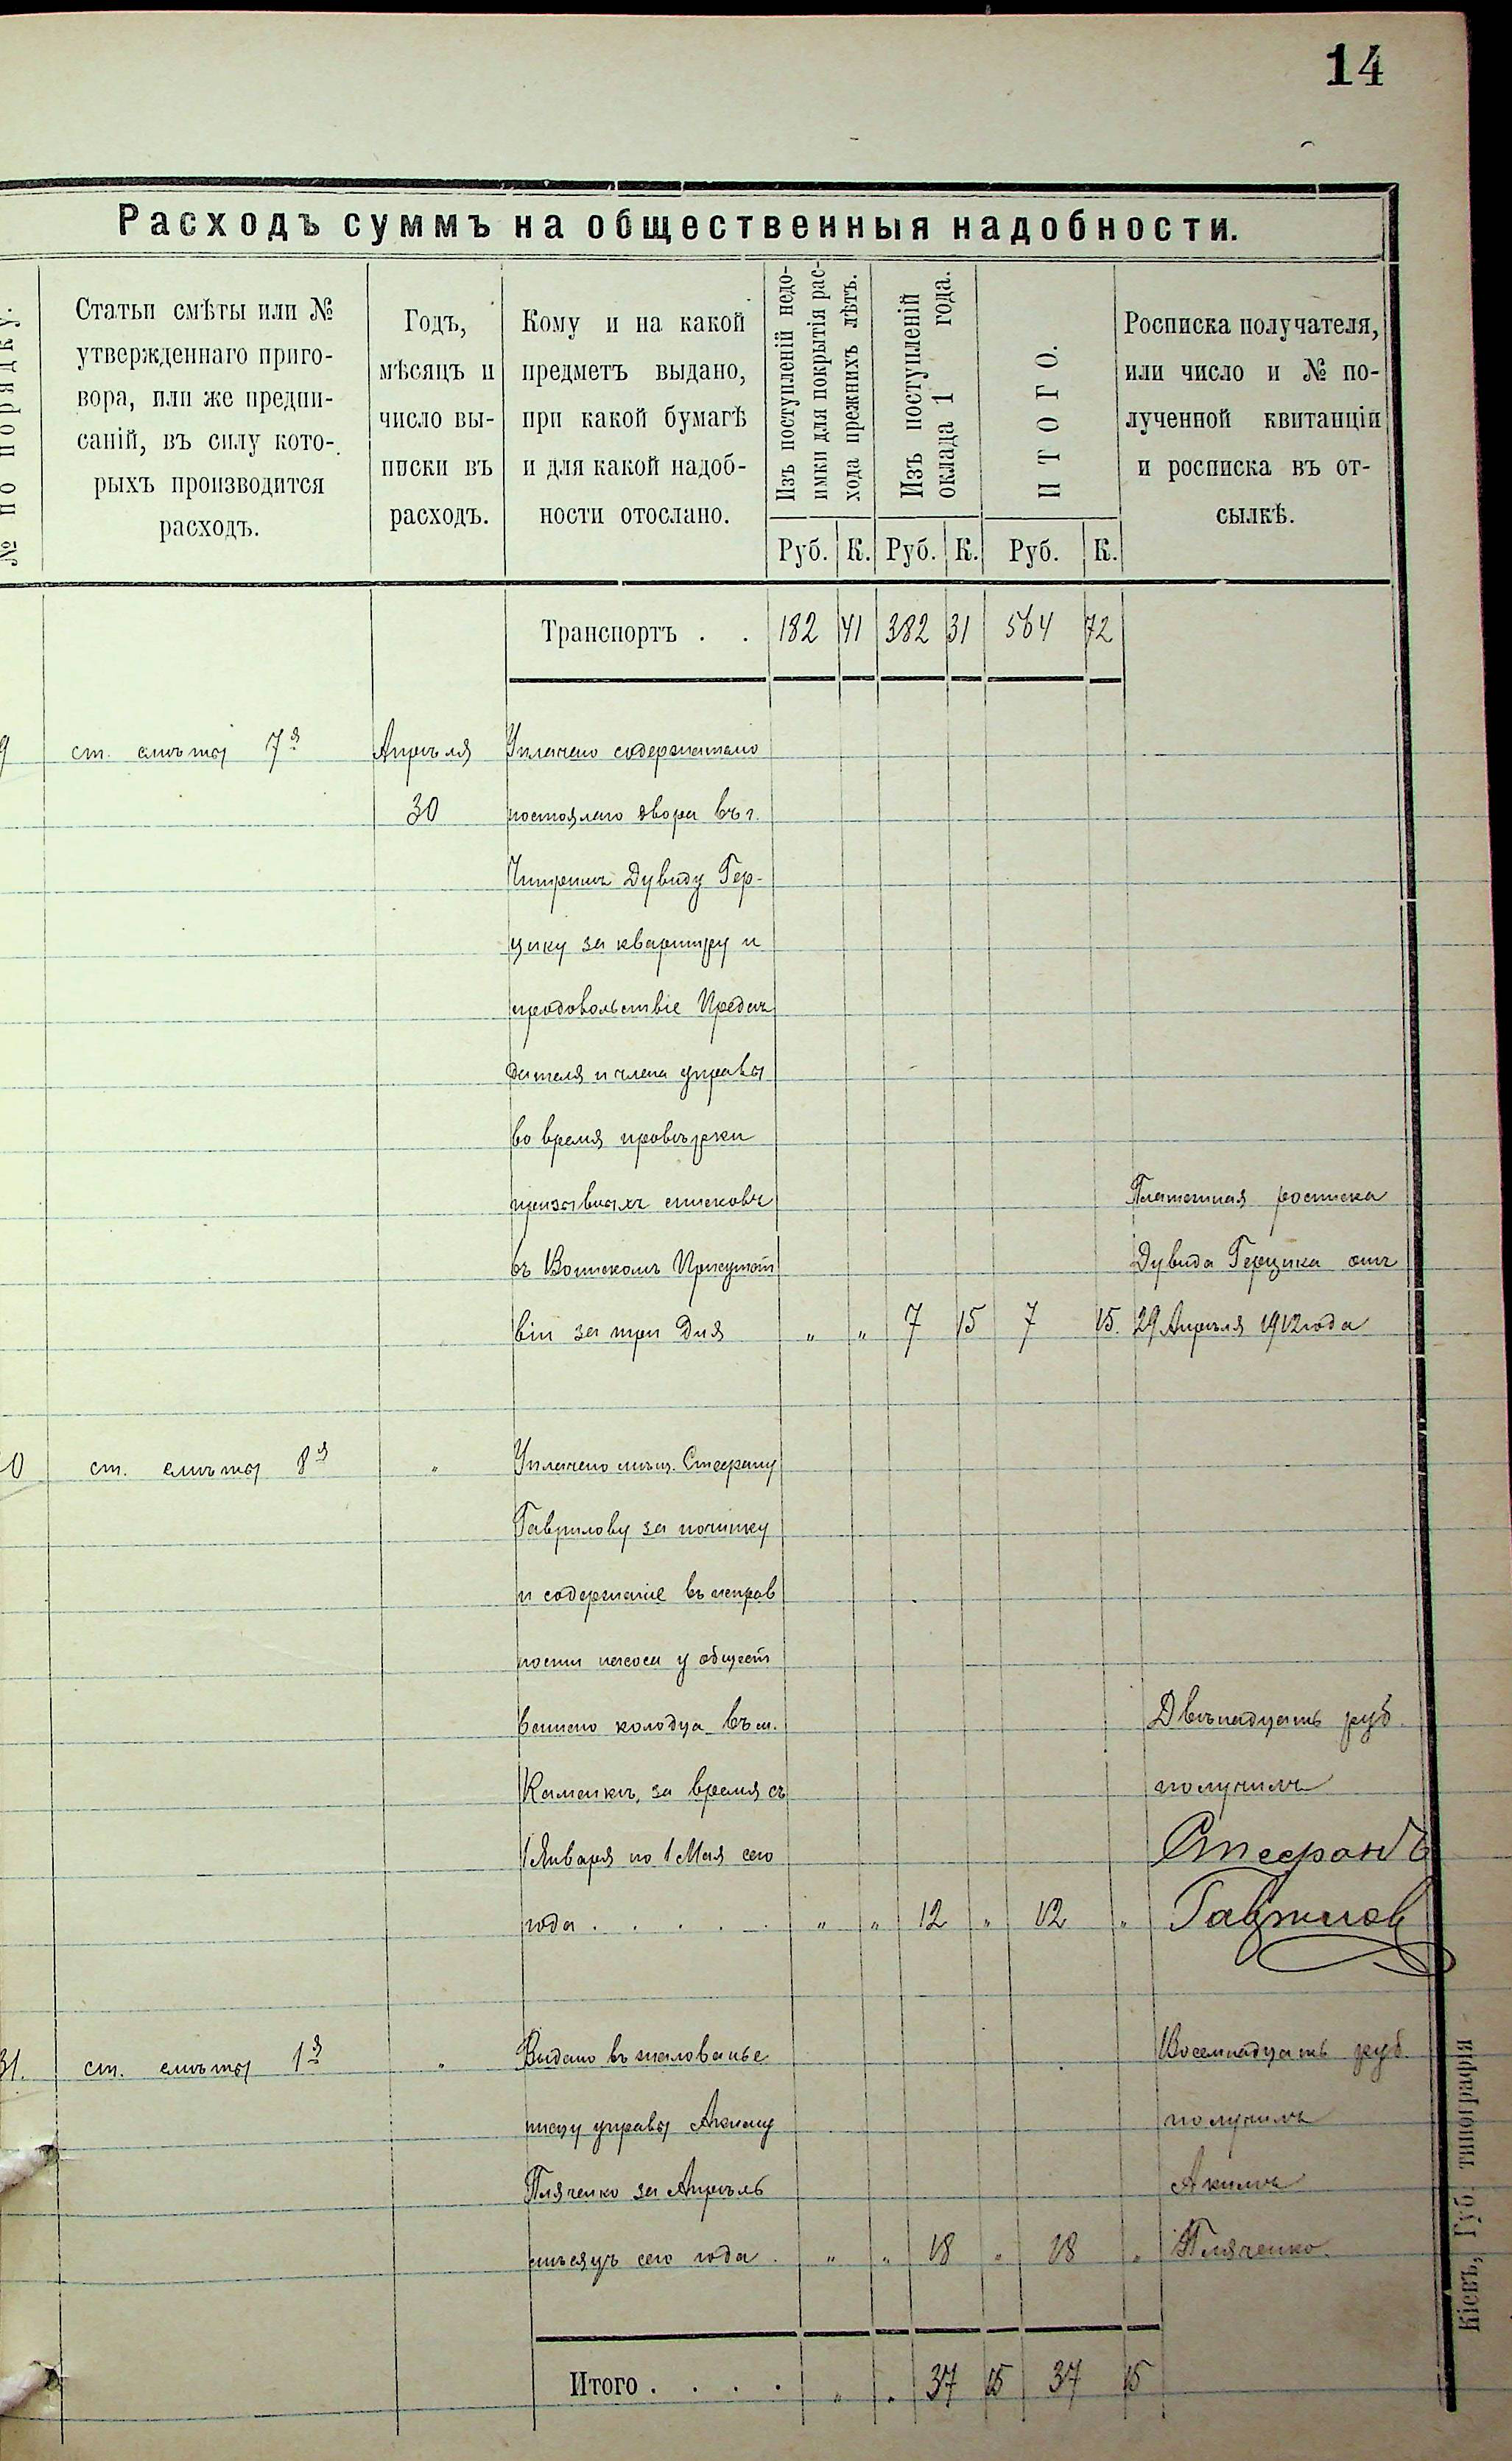 14
Расходъ суммъ на общественныя надобности.
№ по порядку.
Статьи смѣты или №
утвержденнаго приго-
вора, или же предпи-
саній, въ силу кото-
рыхъ производится
расходъ.
Годъ,
мѣсяцъ и
число вы-
писки въ
расходъ.
Кому и на какой
предметъ выдано,
при какой бумагѣ
и для какой надоб-
ности отослано.
Изъ поступленій недо-
имки для покрытія рас-
хода прежнихъ лѣтъ.
Изъ поступленій
оклада 1 года.
ИТОГО.
Росписка получателя,
или число и № по-
лученной квитанціи
и росписка въ от-
сылкѣ.
Руб. К. Руб. К. Руб. К.
Транспортъ . . 182 41 382 31 564 72
9 ст. смѣты 7я Апрѣля Уплачено содержателю
30 постоялаго двора въ г.
Чигринѣ Дувиду Гер-
цику за квартиру и
продовольствіе Предсѣ
дателя и члена управы
во время провѣрки
призывныхъ списковъ
Платежная росписка
въ Воинскомъ Присутст
Дувида Герцика отъ
віи за три дня " " 7 15 7 15. 29 Апрѣля 1912 года
0 ст. смѣты 8я " Уплачено мѣщ. Стефану
Гаврилову за починку
и содержаніе въ исправ
ности насоса у общест
веннаго колодца въ м.
Двѣнадцать руб.
Каменкѣ, за время съ
получилъ
1 Января по 1 Мая сего
Стефанъ
года . . . . . " " 12 " 12 " Гаврилов
31. ст. смѣты 1я " Выдано въ жалованье
Восемнадцать руб.
писцу управы Акиму
получилъ
Пляченко за Апрѣль
Акимъ
мѣсяцъ сего года . " " 18 " 18 " Пляченко.
Итого . . . . " " 37 15 37 15
Кіевъ, Губ. типографія